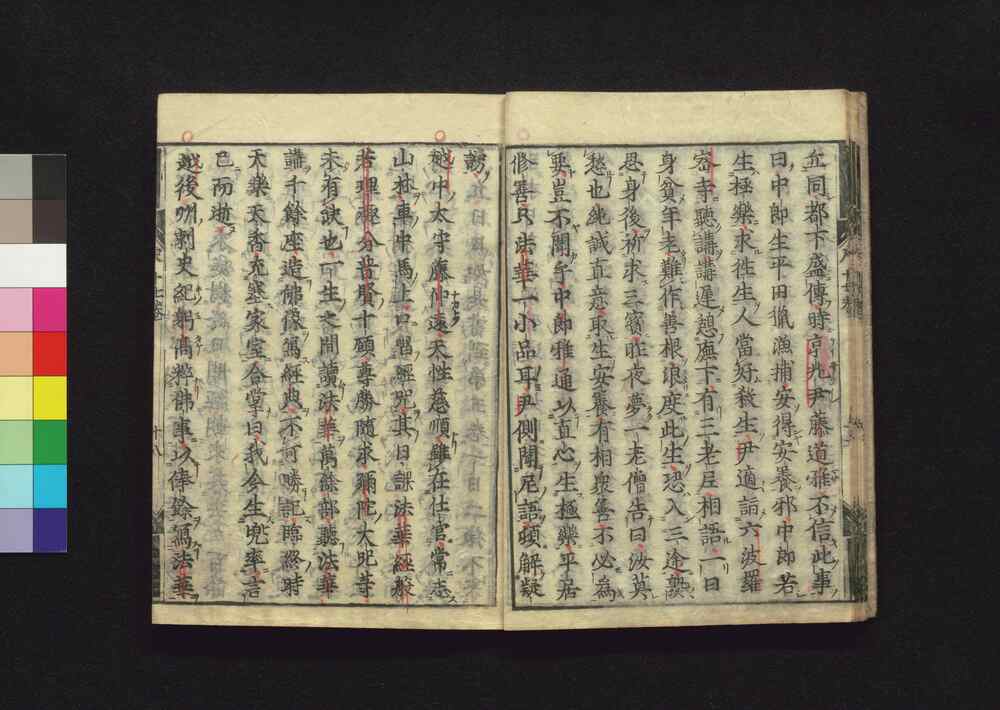 丘同都下盛傳時京兆尹藤道雅不信此事
曰中郎生平田獵漁捕安得安養邪中郎若
生極樂求往生人當好殺生尹適詣六波羅
密寺聽講講遲憩廡下有三老尼相語一曰
身貧年老難作善根浪度此生恐入三途歎
思身後祈求三寳昨夜夢一老僧告曰汝莫
愁也純誠直意取生安養有相衆善不必為
要豈不聞乎中郎雅通以直心生極樂平居
修善只法華一小品耳尹側聞尼語頓解疑
謗
越中太守藤仲遠天性慈順雖在仕官常志
山林車中馬上口誦經咒其日課法華經般
若理趣分普賢十願尊勝隨求彌陀大咒等
未有缺也一生之間讀法華萬餘部聽法華
講千餘座造佛像寫經典不可勝記臨終時
天樂天香充塞家室合掌曰我今生兜率言
已而逝
越後州刺史紀躬高粹佛事以俸餘寫法華